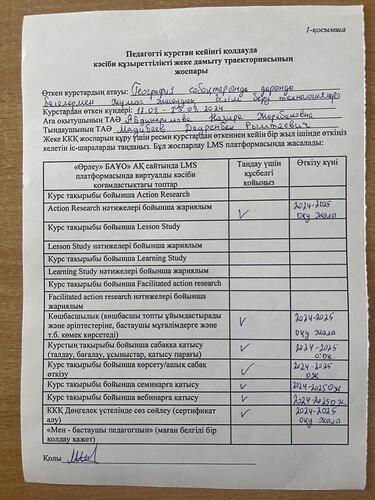 1-қосымша
Педагогті курстан кейінгі қолдауда
кәсіби құзыреттілікті жеке дамыту траекториясының
жоспары
Өткен курстардың атауы: География сабақтарында дарынды
балалармен жұмыс жасаудың білім беру технологиялары
Курстардан өткен күндері: 12.08 - 23.08. 2024
Аға оқытушының ТАӘ Абдикеримова Назира
Тыңдаушының ТАӘ Дауренбек Рымтаевич
Жеке ККҚ жоспарын құру үшін ресми курстардан өткеннен кейін бір жыл ішінде өткіңіз
келетін іс-шараларды таңдаңыз. Бұл жоспарлау LMS платформасында жасалады:
«Өрлеу» БАҰО» АҚ сайтында LMS платформасында виртуалды кәсіби қоғамдастықтағы топтар
Таңдау үшін құсбелгі қойыңыз
Өткізу күні
Курс тақырыбы бойынша Action Research
Action Research нәтижелері бойынша жариялым ✓ 2024-2025 оқу жылы
Курс тақырыбы бойынша Lesson Study
Lesson Study нәтижелері бойынша жариялым
Курс тақырыбы бойынша Learning Study
Learning Study нәтижелері бойынша жариялым
Курс тақырыбы бойынша Facilitated action research
Facilitated action research нәтижелері бойынша
жариялым
Көшбасшылық (көшбасшы топты ұйымдастырады ✓ 2024-2025
және әріптестеріне, бастаушы мұғалімдерге және
т.б. көмек көрсетеді) оқу жылы
Курстың тақырыбы бойынша сабаққа қатысу ✓ 2024-2025
(талдау, бағалау, ұсыныстар, қатысу парағы) о.ж
Курс тақырыбы бойынша көрсету/ашық сабақ ✓ 2024-2025
өткізу ож
Курс тақырыбы бойынша семинарға қатысу ✓ 2024-2025 ож
Курс тақырыбы бойынша вебинарға қатысу ✓ 2024-2025 ож
ККҚ Дөңгелек үстелінде сөз сөйлеу (сертификат ✓ 2024-2025
алу) оқу жылы
«Мен - бастаушы педагогпын» (маған белгілі бір
қолдау қажет)
Қолы